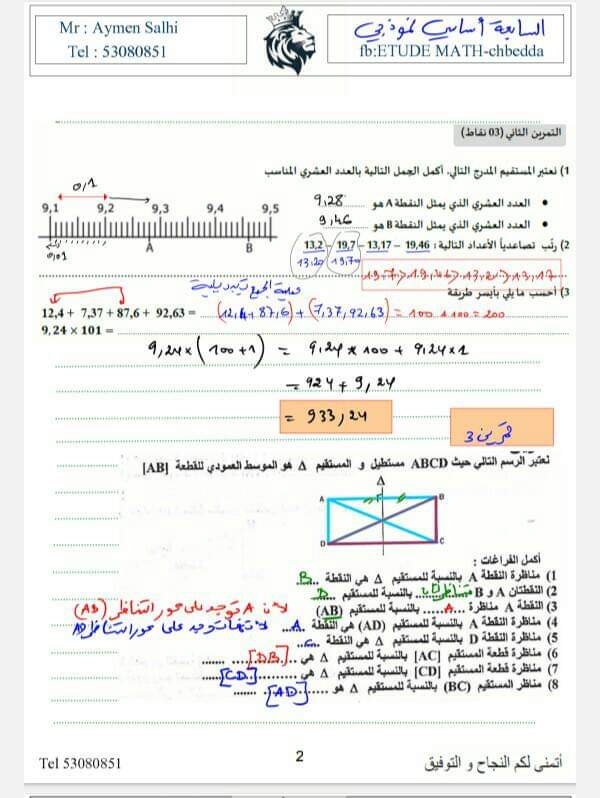 Mr : Aymen Salhi
Tel : 53080851
السابعة أساسي نموذجي
fb:ETUDE MATH-chbedda
التمرين الثاني (03 نقاط)
1) نعتبر المستقيم المدرج التالي. أكمل الجمل التالية بالعدد العشري المناسب
0,1
9,1 9,2 9,3 9,4 9,5
A B
0,01
العدد العشري الذي يمثل النقطة A هو 9,28
العدد العشري الذي يمثل النقطة B هو 9,46
2) رتّب تصاعدياً الأعداد التالية : 19,46 – 13,17 – 19,7 – 13,2
13,20 19,70
19,7 > 19,46 > 13,2 > 13,17
3) أحسب ما يلي بأيسر طريقة
عملية الجمع تبديلية
12,4 + 7,37 + 87,6 + 92,63 = (12,4 + 87,6) + (7,37, 92,63) = 100 + 100 = 200
9,24 × 101 =
9,24 × (100 + 1) = 9,24 × 100 + 9,24 × 1
= 924 + 9,24
= 933,24
تمرين 3
نعتبر الرسم التالي حيث ABCD مستطيل و المستقيم Δ هو الموسط العمودي للقطعة [AB]
Δ
A B
D C
أكمل الفراغات :
1) مناظرة النقطة A بالنسبة للمستقيم Δ هي النقطة B
2) النقطتان A و B متناظرتان بالنسبة للمستقيم Δ
3) النقطة A مناظرة A بالنسبة للمستقيم (AB) لأن A توجد على محور التناظر (AB)
4) مناظرة النقطة A بالنسبة للمستقيم (AD) هي النقطة A لأنها توجد على محور التناظر AD
5) مناظرة النقطة D بالنسبة للمستقيم Δ هي النقطة C
6) مناظرة قطعة المستقيم [AC] بالنسبة للمستقيم Δ هي [DB]
7) مناظرة قطعة المستقيم [CD] بالنسبة للمستقيم Δ هي [CD]
8) مناظر المستقيم (BC) بالنسبة للمستقيم Δ هو [AD]
Tel 53080851
2
أتمنى لكم النجاح و التوفيق